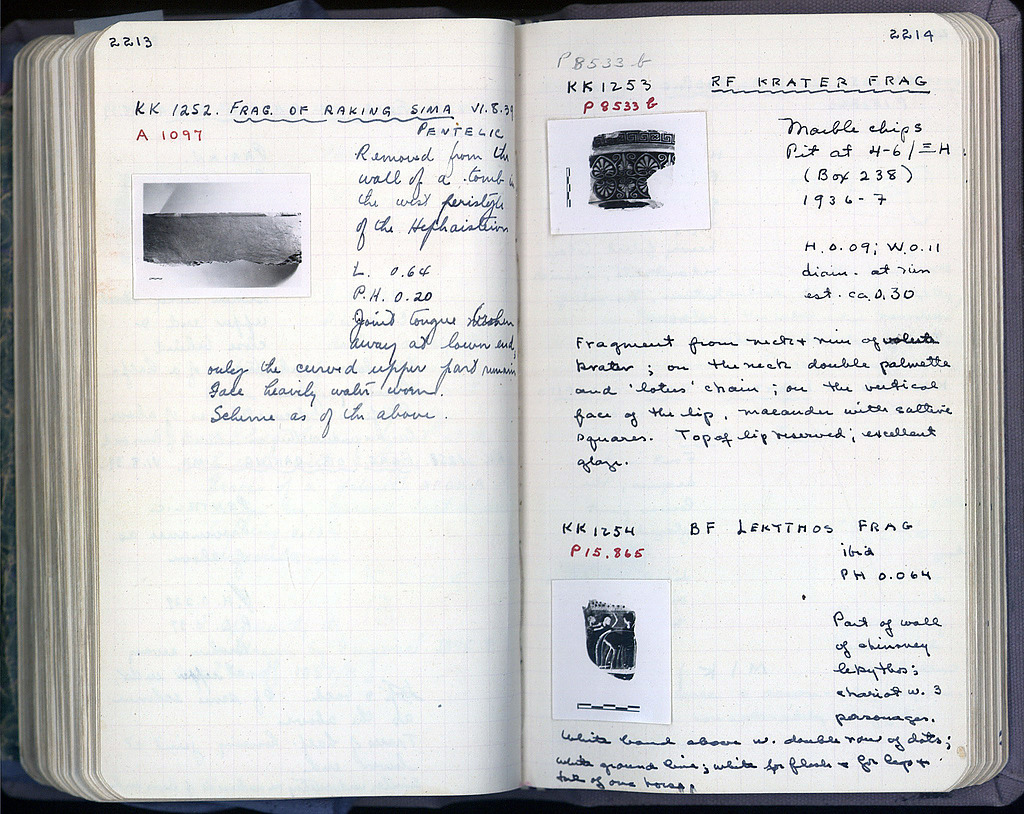 2213
KK 1252. FRAG. OF RAKING SIMA VI.8.39
A 1097
PENTELIC
Removed from the
wall of a tomb in
the west peristyle
of the Hephaisteion
L. 0.64
P.H. 0.20
Joint tongue broken
away at lower end;
only the curved upper part remains
Face heavily water worn.
Scheme as of the above.
2214
P 8533 b
KK 1253 RF KRATER FRAG
P 8533 b
Marble chips
Pit at 4-6/ΞH
(Box 238)
1936-7
H. 0.09; W. 0.11
diam. at rim
est. ca 0.30
Fragment from neck + rim of volute
krater; on the neck double palmette
and 'lotus' chain; on the vertical
face of the lip, maeander with saltire
squares. Top of lip reserved; excellent
glaze.
KK 1254 BF LEKYTHOS FRAG
P 15,865
ibid
PH 0.064
Part of wall
of chimney
lekythos;
chariot w. 3
personages.
White band above w. double row of dots;
white ground line; white for flesh + for legs +
tail of one horse.